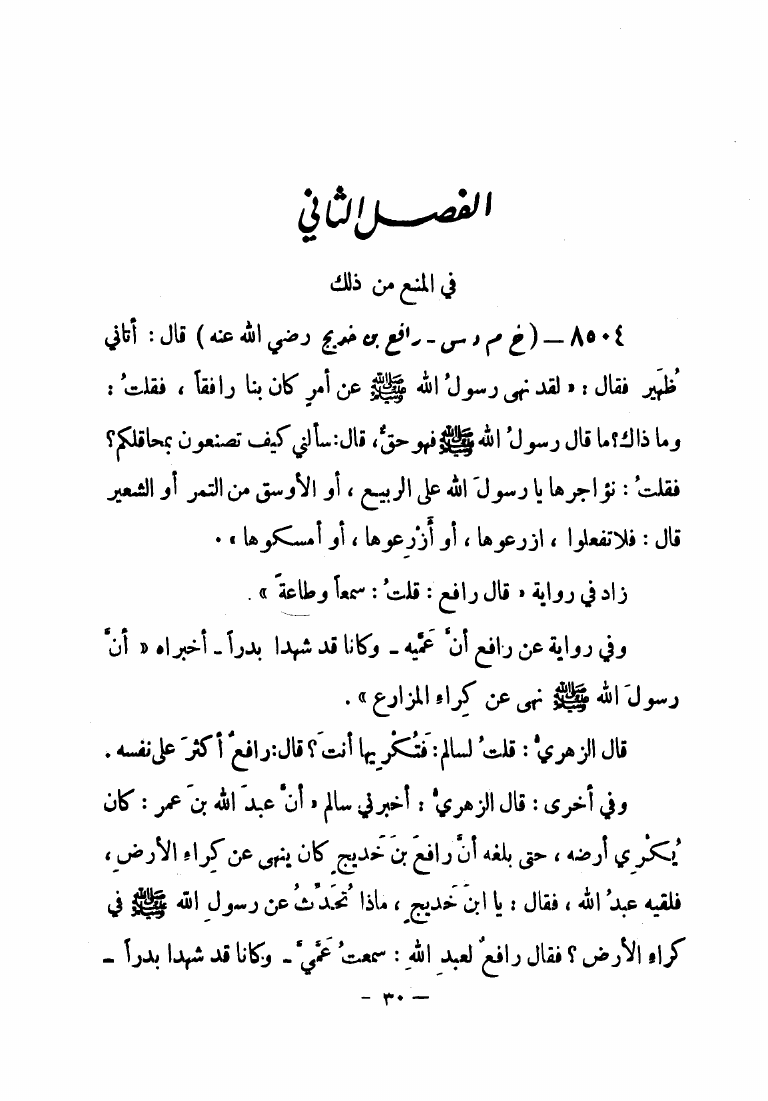 الفصل الثاني
في المنع من ذلك
٨٥٠٤ – (خ م د س - رافع بن خديج رضي الله عنه) قال: أتاني
ظُهَير فقال: «لقد نهى رسولُ الله ﷺ عن أمرٍ كان بنا رافقاً، فقلتُ:
وما ذاك؟ ما قال رسولُ الله ﷺ فهو حقٌّ، قال: سألني كيف تصنعون بمحاقلكم؟
فقلتُ: نؤاجرها يا رسولَ الله على الربيع، أو الأوسق من التمر أو الشعير
قال: فلا تفعلوا، ازرعوها، أو أَزْرِعوها، أو أمسكوها».
زاد في رواية «قال رافع: قلتُ: سمعاً وطاعةً».
وفي رواية عن رافع أنَّ عَمَّيه - وكانا قد شهدا بدراً - أخبراه «أنَّ
رسولَ الله ﷺ نهى عن كِراءِ المزارع».
قال الزهريُّ: قلتُ لسالم: فَتُكْرِيها أنتَ؟ قال: رافعٌ أكثرَ على نفسه.
وفي أخرى: قال الزهريُّ: أخبرني سالم «أنَّ عبدَ الله بنَ عمر: كان
يُكْرِي أرضه، حتى بلغه أنَّ رافعَ بنَ خَديجٍ كان ينهى عن كِراءِ الأرضِ،
فلقيه عبدُ الله، فقال: يا ابنَ خَديجٍ، ماذا تُحَدِّثُ عن رسولِ الله ﷺ في
كراءِ الأرض؟ فقال رافعٌ لعبدِ اللهِ: سمعتُ عَمَّيَّ - وكانا قد شهدا بدراً -
- ٣٠ -